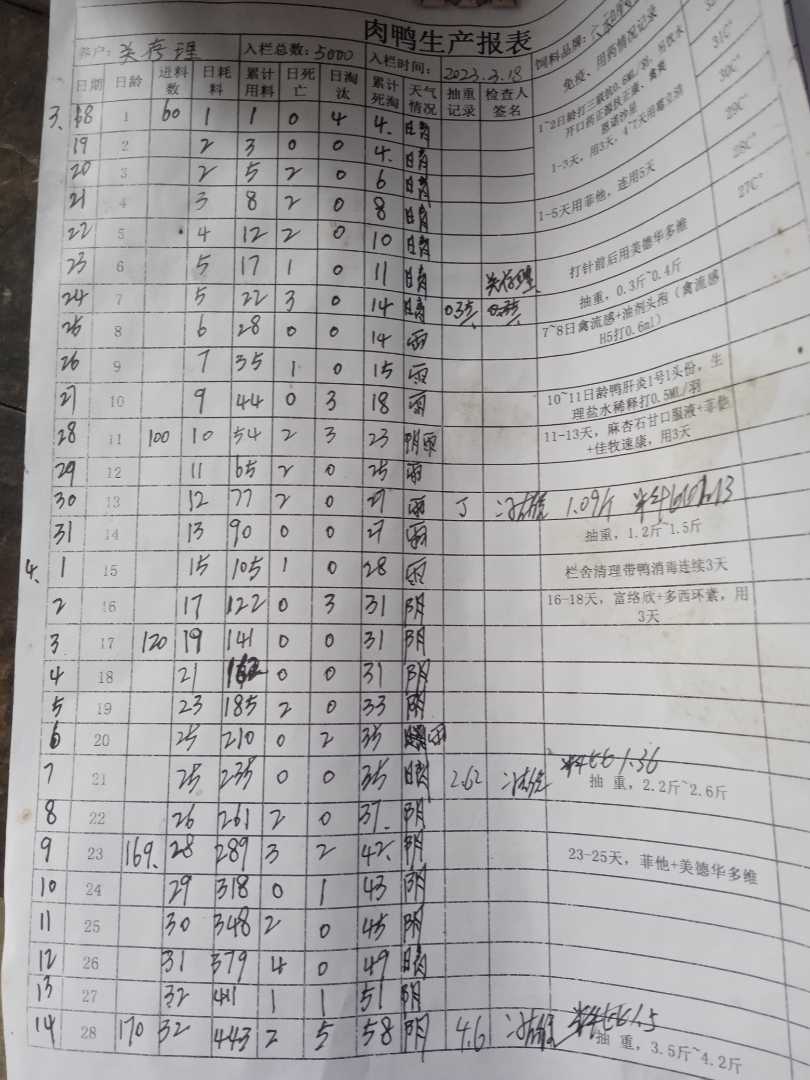 肉鸭生产报表
养户: 入栏总数: 5000 入栏时间: 2023.3.18 饲料品牌:
日期 日龄 进料数 日耗料 累计用料 日死亡 日淘汰 累计死淘 天气情况 抽重记录 检查人签名 免疫、用药情况记录
3. 18 1 60 1 1 0 4 4. 晴
31C°
19 2 2 3 0 0 4. 晴
30C°
20 3 2 5 2 0 6 晴 1-3天, 用3天,
29C°
21 4 3 8 2 0 8 晴 1-5天用菲他, 连用5天
28C°
22 5 4 12 2 0 10 晴
27C°
23 6 5 17 1 0 11 晴 打针前后用美德华多维
24 7 5 22 3 0 14 晴 抽重, 0.3斤~0.4斤
25 8 6 28 0 0 14 雨 7~8日禽流感+油剂头孢(禽流感H5打0.6ml)
26 9 7 35 1 0 15 雨
27 10 9 44 0 3 18 雨 10~11日龄鸭肝炎1号1头份, 生理盐水稀释打0.5ML/羽
28 11 100 10 54 2 3 23 阴雨 11-13天, 麻杏石甘口服液+菲他+佳牧速康, 用3天
29 12 11 65 2 0 25 雨
30 13 12 77 2 0 27 雨 1.09斤
31 14 13 90 0 0 27 雨 抽重, 1.2斤~1.5斤
4. 1 15 15 105 1 0 28 雨 栏舍清理带鸭消毒连续3天
2 16 17 122 0 3 31 阴 16-18天, 富络欣+多西环素, 用3天
3 17 120 19 141 0 0 31 阴
4 18 21 162 0 0 31 阴
5 19 23 185 2 0 33 阴
6 20 25 210 0 2 35 雨
7 21 25 235 0 0 35 晴 2.62 1.36
抽 重, 2.2斤~2.6斤
8 22 26 261 2 0 37. 阴
9 23 169. 28 289 3 2 42. 阴 23-25天, 菲他+美德华多维
10 24 29 318 0 1 43 阴
11 25 30 348 2 0 45 阴
12 26 31 379 4 0 49 晴
13 27 32 411 1 1 51 阴
14 28 170 32 443 2 5 58 阴 4.6 1.5
抽 重, 3.5斤~4.2斤